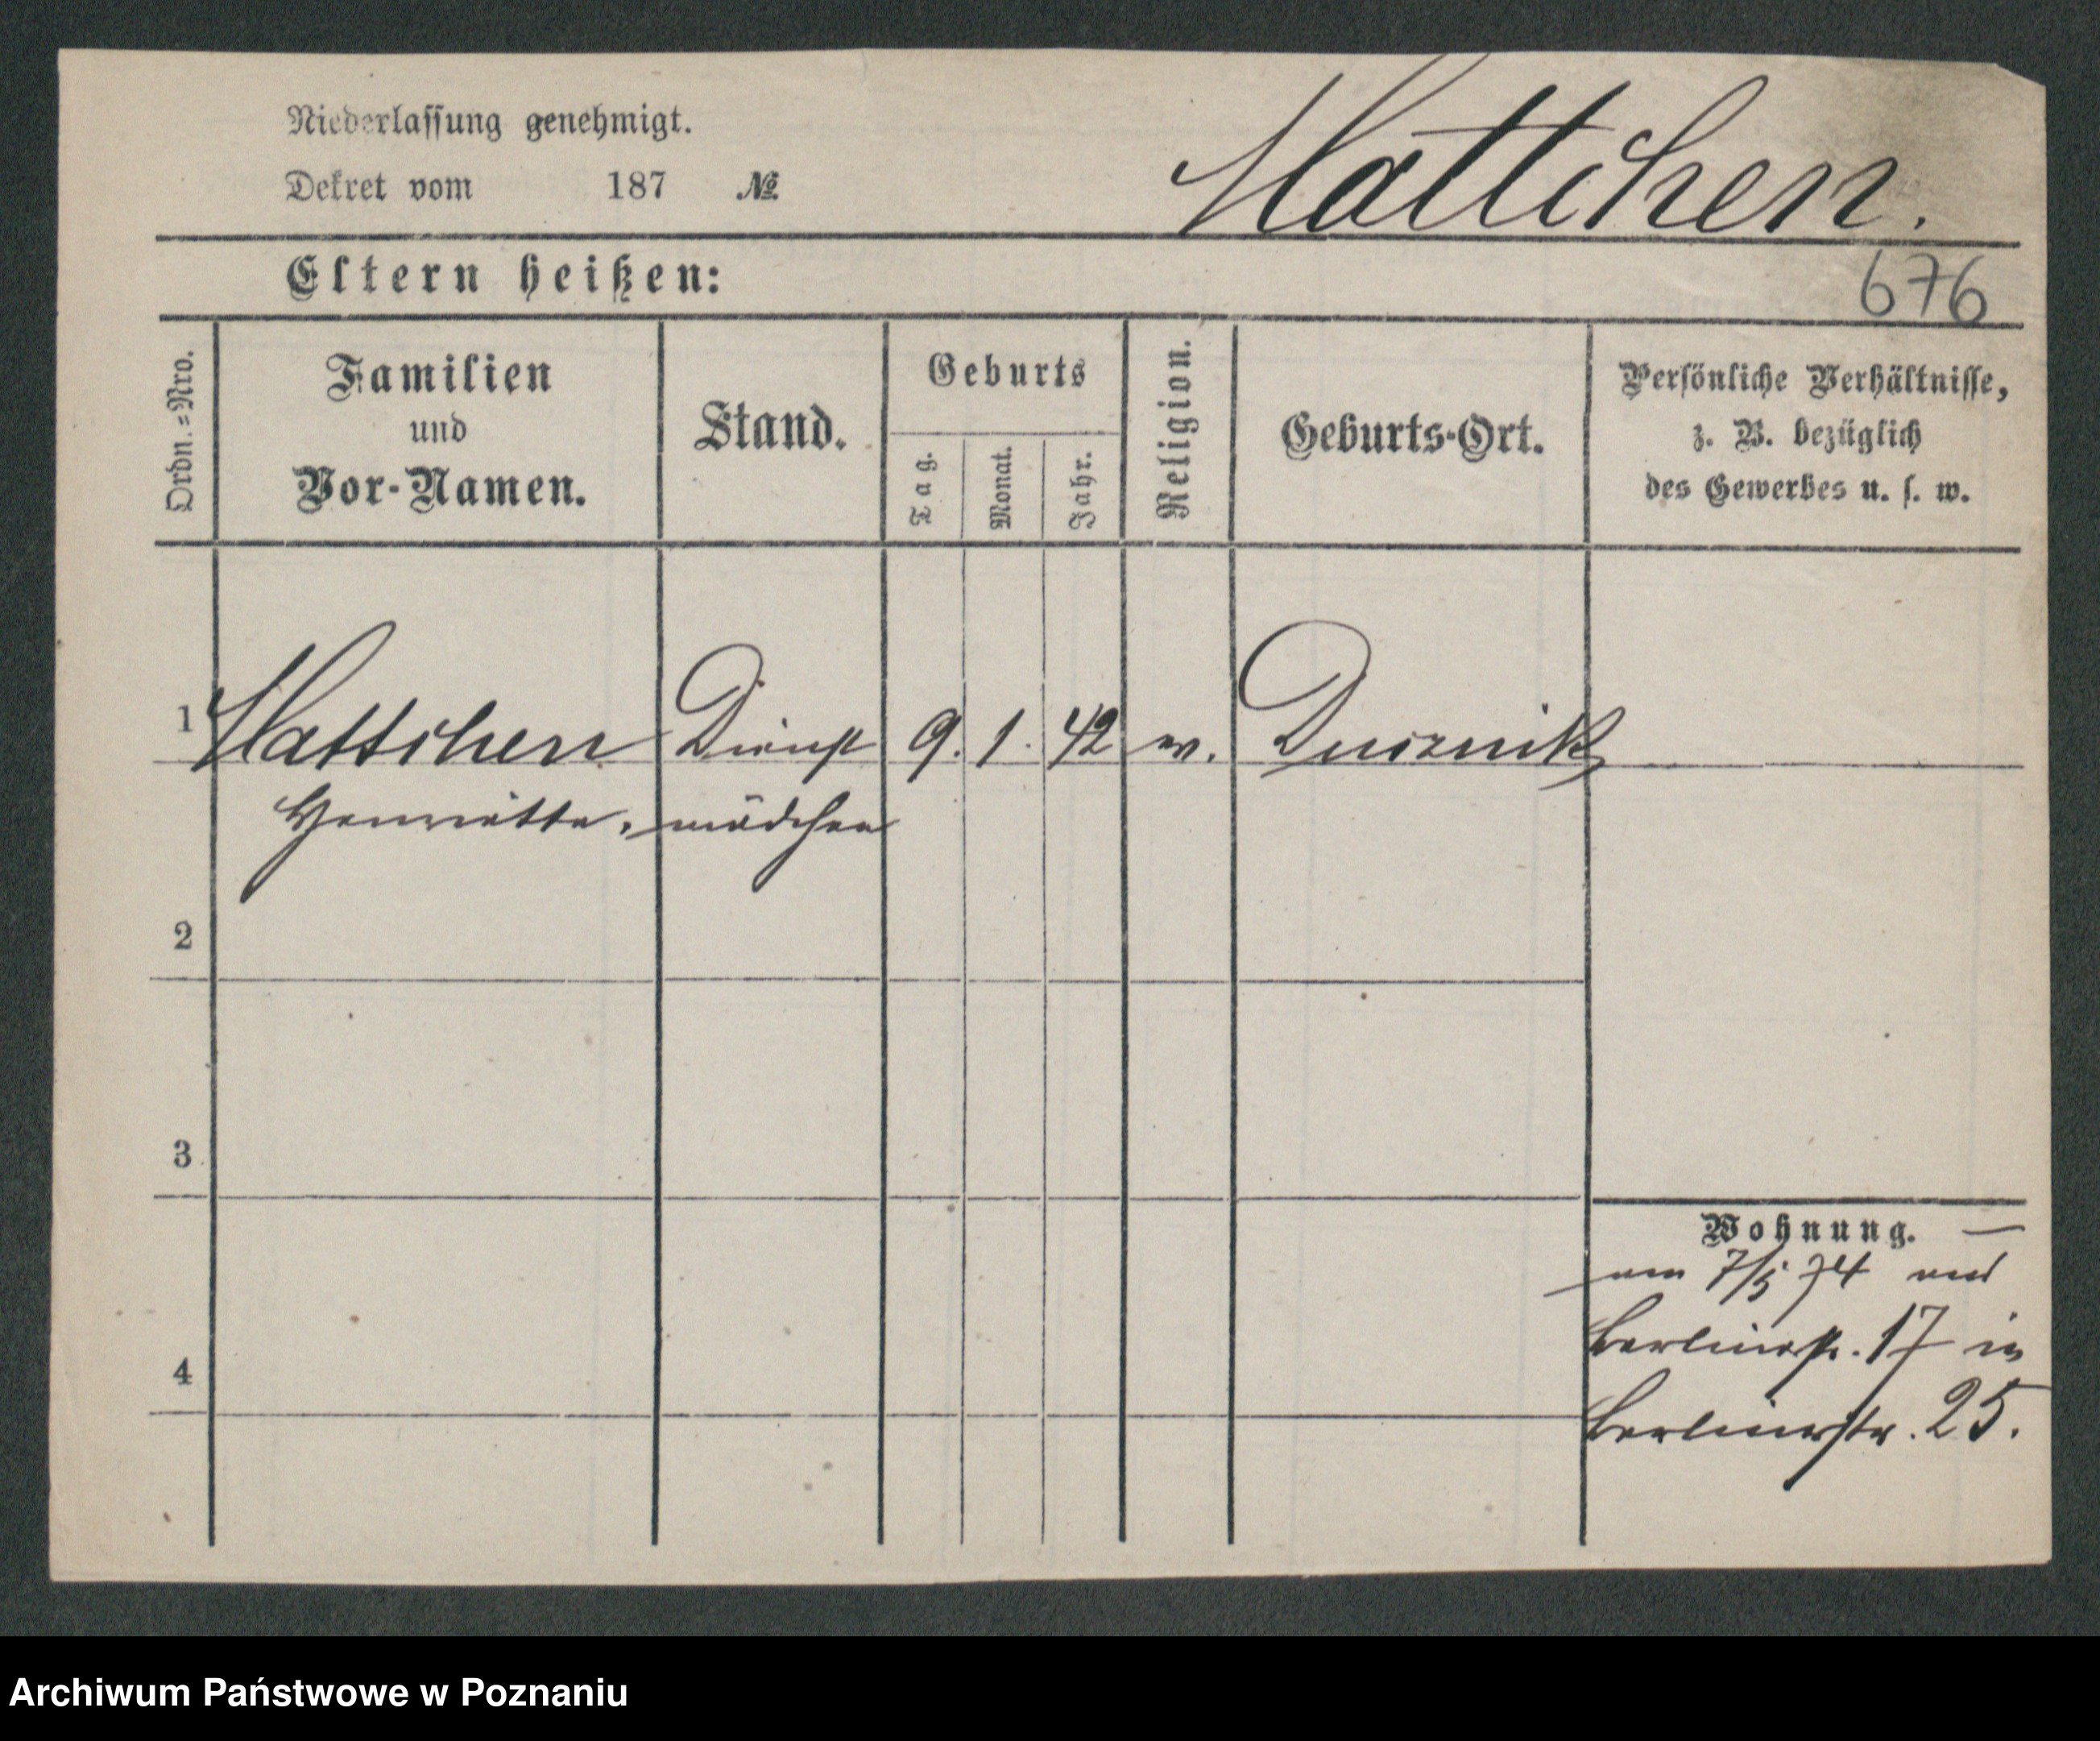 Niederlassung genehmigt.
Dekret vom 187 №
Hattchen.
Eltern heißen:
676
Ordn.=Nro.
Familien
und
Vor-Namen.
Stand.
Geburts
Tag.
Monat.
Jahr.
Religion.
Geburts-Ort.
Persönliche Verhältnisse,
z. B. bezüglich
des Gewerbes u. s. w.
1 Hattchen Dienst 9. 1. 42 Dusznik
Henriette. mädchen
2
3
4
Wohnung. —
7/5 74
Berlinerstr. 17 in
Berlinerstr. 25.
Archiwum Państwowe w Poznaniu